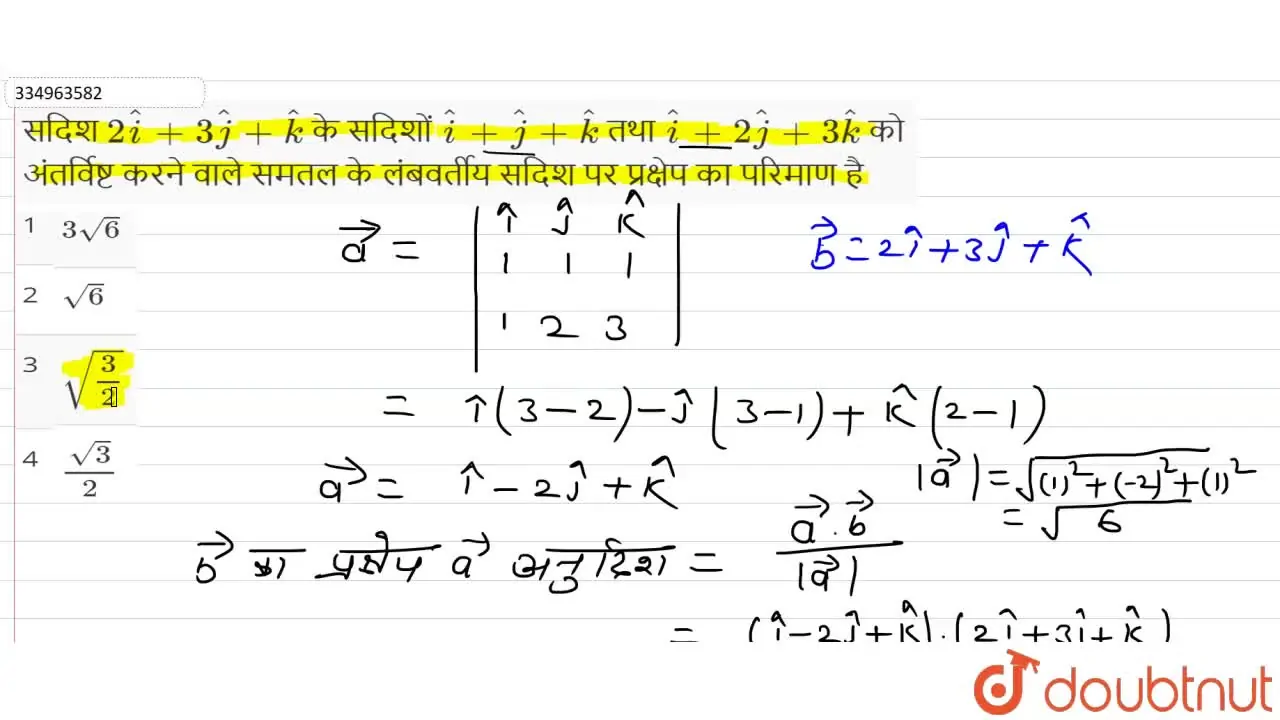 334963582
सदिश 2î + 3ĵ + k̂ के सदिशों î + ĵ + k̂ तथा î + 2ĵ + 3k̂ को
अंतर्विष्ट करने वाले समतल के लंबवर्तीय सदिश पर प्रक्षेप का परिमाण है
1 3√6
2 √6
3 √(3/2)
4 √3/2
a⃗ = | î ĵ k̂ |
1 1 1
1 2 3
b⃗ = 2î + 3ĵ + k̂
= î(3 − 2) − ĵ(3 − 1) + k̂(2 − 1)
a⃗ = î − 2ĵ + k̂
|a⃗| = √(1)² + (−2)² + (1)²
= √6
b⃗ का प्रक्षेप a⃗ अनुदिश = a⃗ . b⃗ / |a⃗|
= (î − 2ĵ + k̂) . (2î + 3ĵ + k̂)
doubtnut